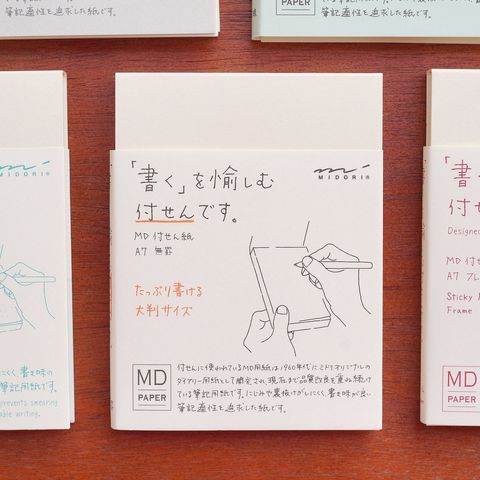 筆記適性を追求した紙です。
PAPER
「書く」を愉しむ
付せんです。
MIDORI®
MD 付せん紙
A7 無罫
たっぷり書ける
大判サイズ
付せんに使われているMD用紙は1960年代にミドリオリジナルの
ダイアリー用紙として開発され、現在まで品質改良を重ね続け
ている筆記用紙です。にじみや裏抜けがしにくく、書き味が良い
筆記適性を追求した紙です。
MD
PAPER
MIDORI®
にくく、書き味の
筆記用紙です。
prevents smearing
able writing.
「書
付せ
Designed
MD 付せ
A7 フレ
Sticky
Frame
MD
PAPER